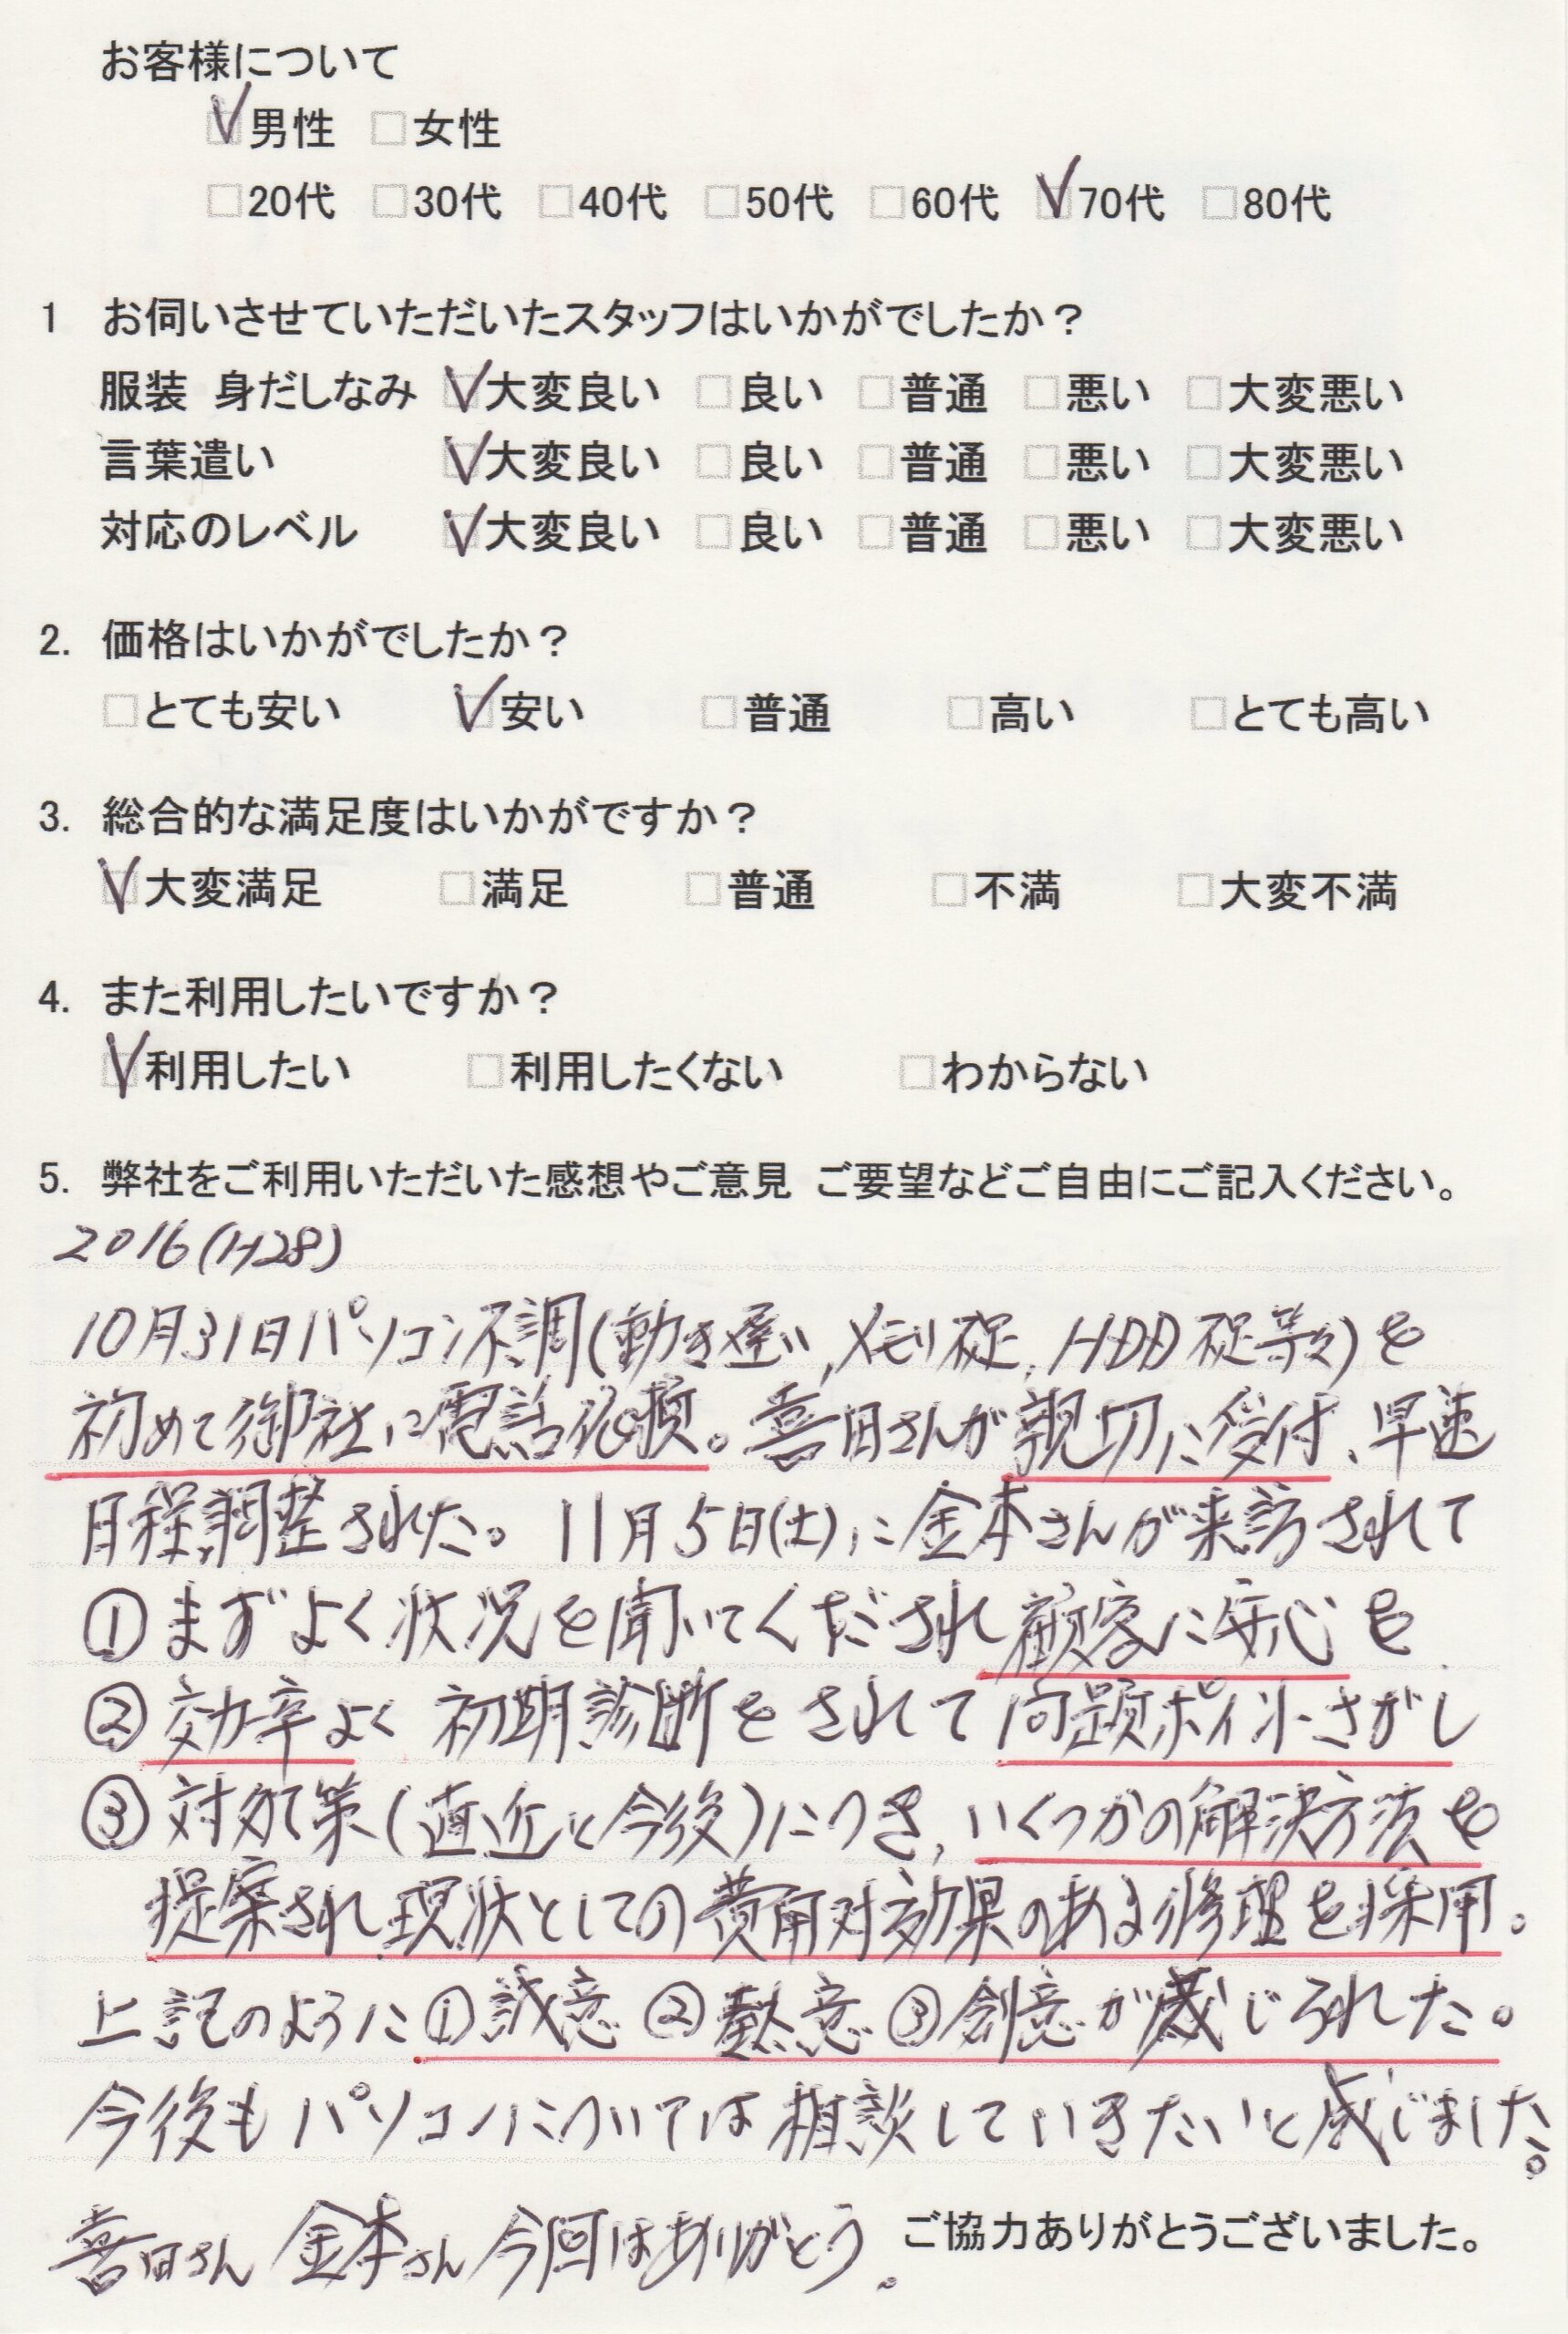 お客様について
☑男性 □女性
□20代 □30代 □40代 □50代 □60代 ☑70代 □80代
1 お伺いさせていただいたスタッフはいかがでしたか？
服装 身だしなみ ☑大変良い □良い □普通 □悪い □大変悪い
言葉遣い ☑大変良い □良い □普通 □悪い □大変悪い
対応のレベル ☑大変良い □良い □普通 □悪い □大変悪い
2. 価格はいかがでしたか？
□とても安い ☑安い □普通 □高い □とても高い
3. 総合的な満足度はいかがですか？
☑大変満足 □満足 □普通 □不満 □大変不満
4. また利用したいですか？
☑利用したい □利用したくない □わからない
5. 弊社をご利用いただいた感想やご意見 ご要望などご自由にご記入ください。
2016(H28)
10月31日パソコン不調(動き遅い,メモリ不足,HDD不足等々)を
初めて御社に電話依頼。喜田さんが親切に受付、早速
日程調整された。11月5日(土)に金本さんが来訪されて
①まずよく状況を聞いてくだされ顧客に安心を
②効率よく初期診断をされて問題ポイントさがし
③対応策(直近と今後)につき,いくつかの解決方法を
提案され現状としての費用対効果のある修理を採用。
上記のように①誠意②熱意③創意が感じられた。
今後もパソコンについては相談していきたいと感じました。
喜田さん 金本さん 今回はありがとう。
ご協力ありがとうございました。